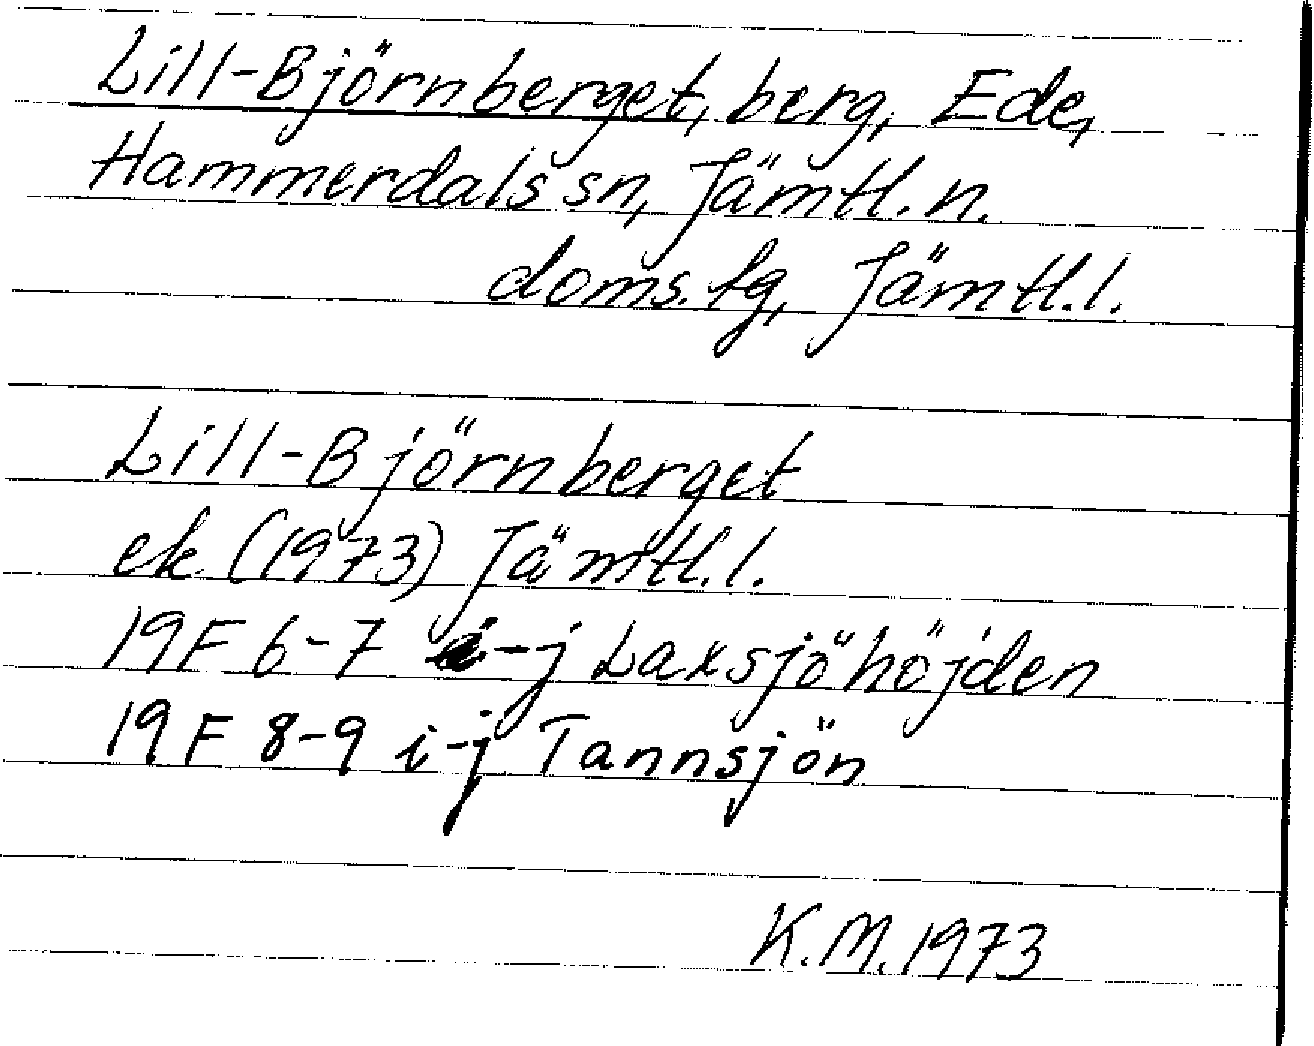 Lill-Björnberget, berg, Ede,
Hammerdals sn, Jämtl. n.
doms. fg, Jämtl. l.
Lill-Björnberget
ek. (1973) Jämtl. l.
19F 6-7 i-j Laxsjöhöjden
19F 8-9 i-j Tannsjön
K.M. 1973